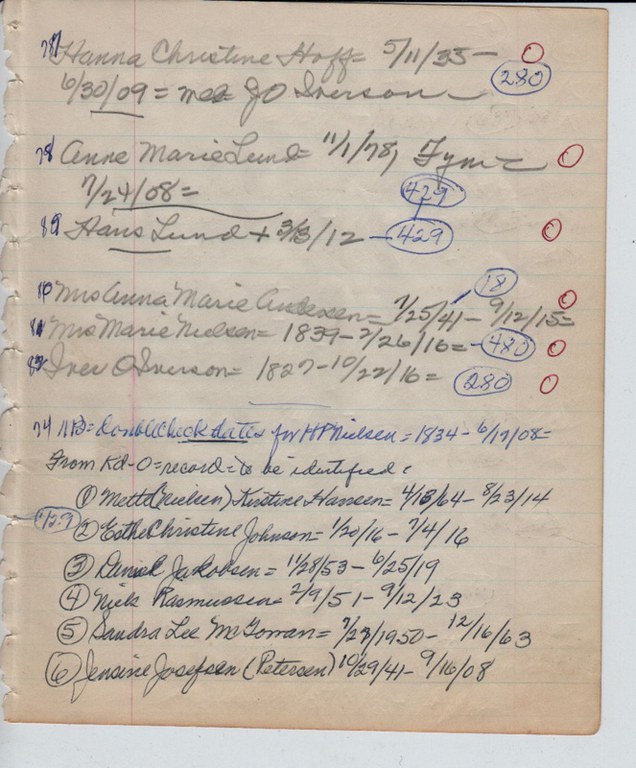 78) Hanna Christine Hoff = 5/11/33 — O
6/30/09 = JO Iverson — 280
78 Anne Marie Lund = 11/1/78, Fyn = O
7/24/08 = 429
89 Hans Lund + 3/13/12 — 429 O
18
Mrs Anna Marie Andersen = 7/25/41 - 9/12/15 = O
Mrs Marie Nielsen = 1839 - 2/26/16 = - 480 O
Iver O Iverson = 1827 - 10/22/16 = 280 O
74 NB = Double Check dates for HP Nielsen = 1834 - 6/17/08 =
From Kd-O = record = to be identified :
① Mette (Nielsen) Kirstine Hansen = 4/13/64 - 8/23/14
429 ② Esther Christine Johnson = 1/20/16 - 7/4/16
③ Daniel Jakobsen = 11/28/53 - 6/25/19
④ Niels Rasmussen = 2/9/51 - 9/12/23
⑤ Sandra Lee McGowan = 7/23/1950 - 12/16/63
⑥ Jensine Josefsen (Petersen) 10/29/41 - 9/16/08